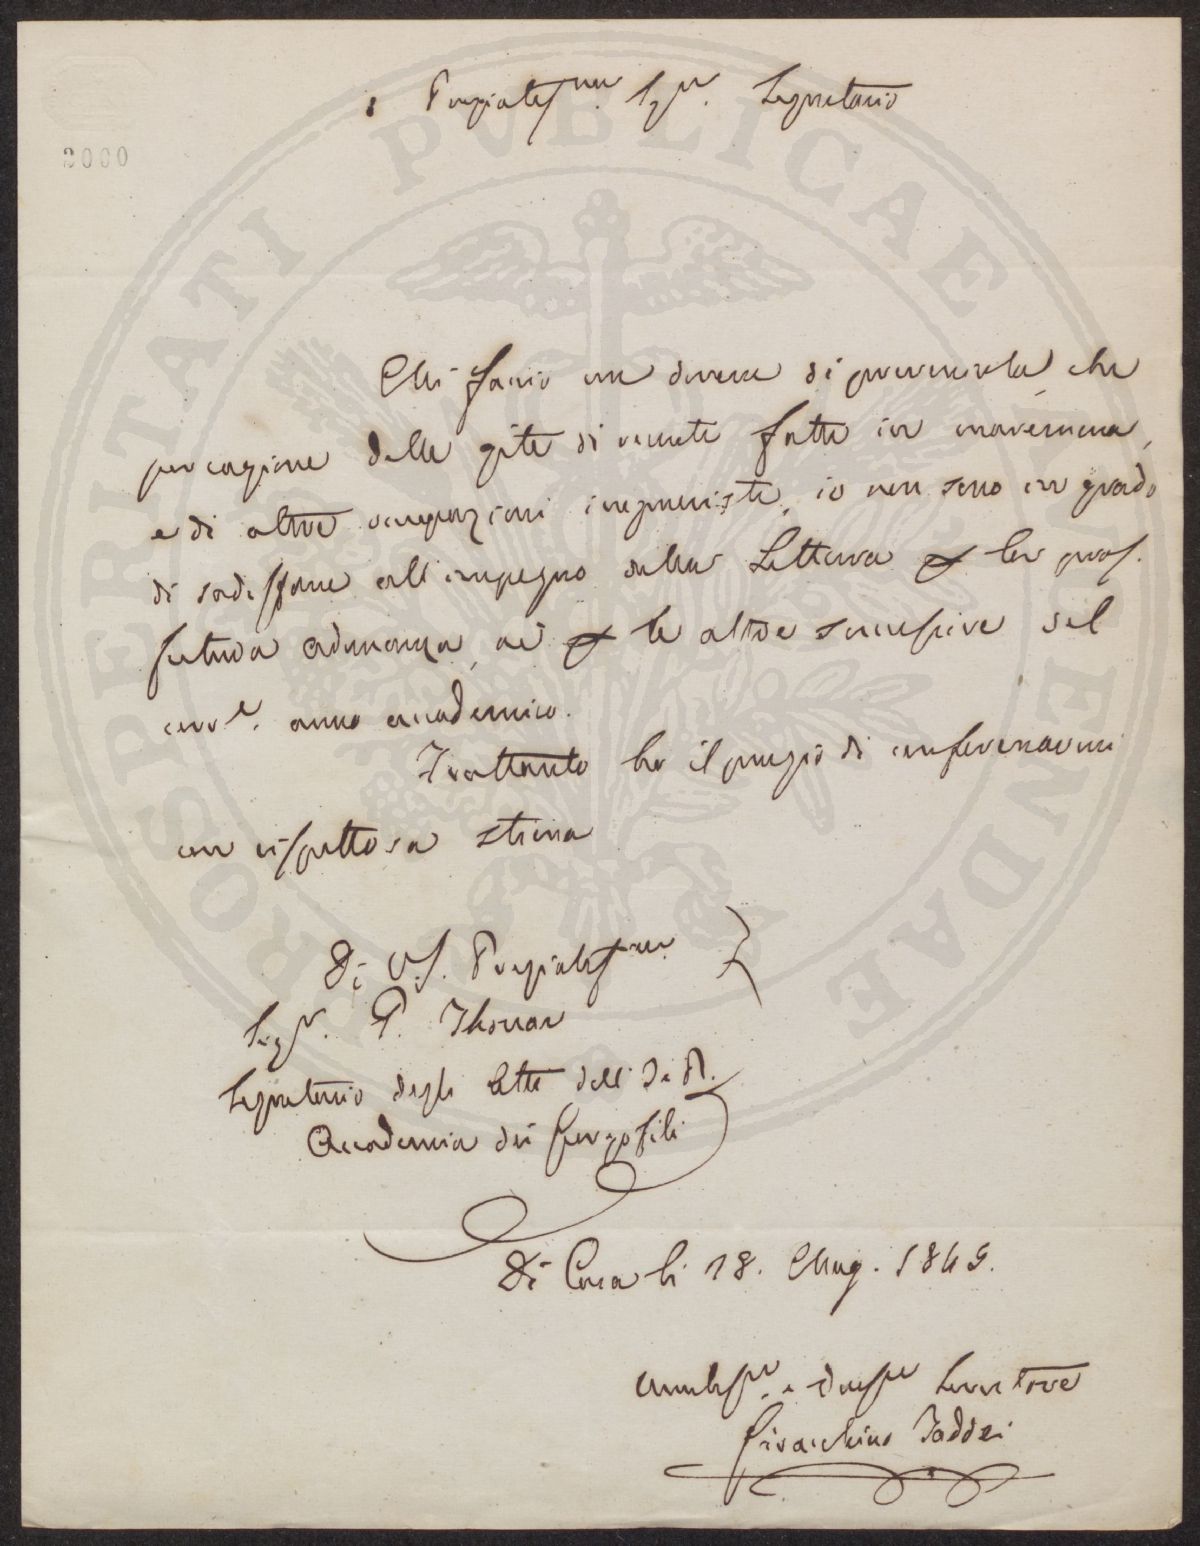 2000
Pregiatis.mo Sig.r Segretario
Mi faccio un dovere di prevenirla, che
per cagione delle gite di recente fatte in maremma,
e di altre occupazioni impreviste, io non sono in grado
di sodisfare all'impegno della Lettura per la pros.
futura adunanza, nè per le altre successive del
corr.e anno accademico.
Trattanto ho il pregio di confermarmi
con rispettosa stima
Di V.S. Pregiatis.ma
Sig.r P. Thouar
Segretario degli Atti dell'I. e R.
Accademia dei Georgofili
Di Casa li 18. Mag. 1849.
Umiliss.o e Dev.mo Servitore
Gioacchino Taddei
PROSPERITATI PUBLICAE AUGENDAE